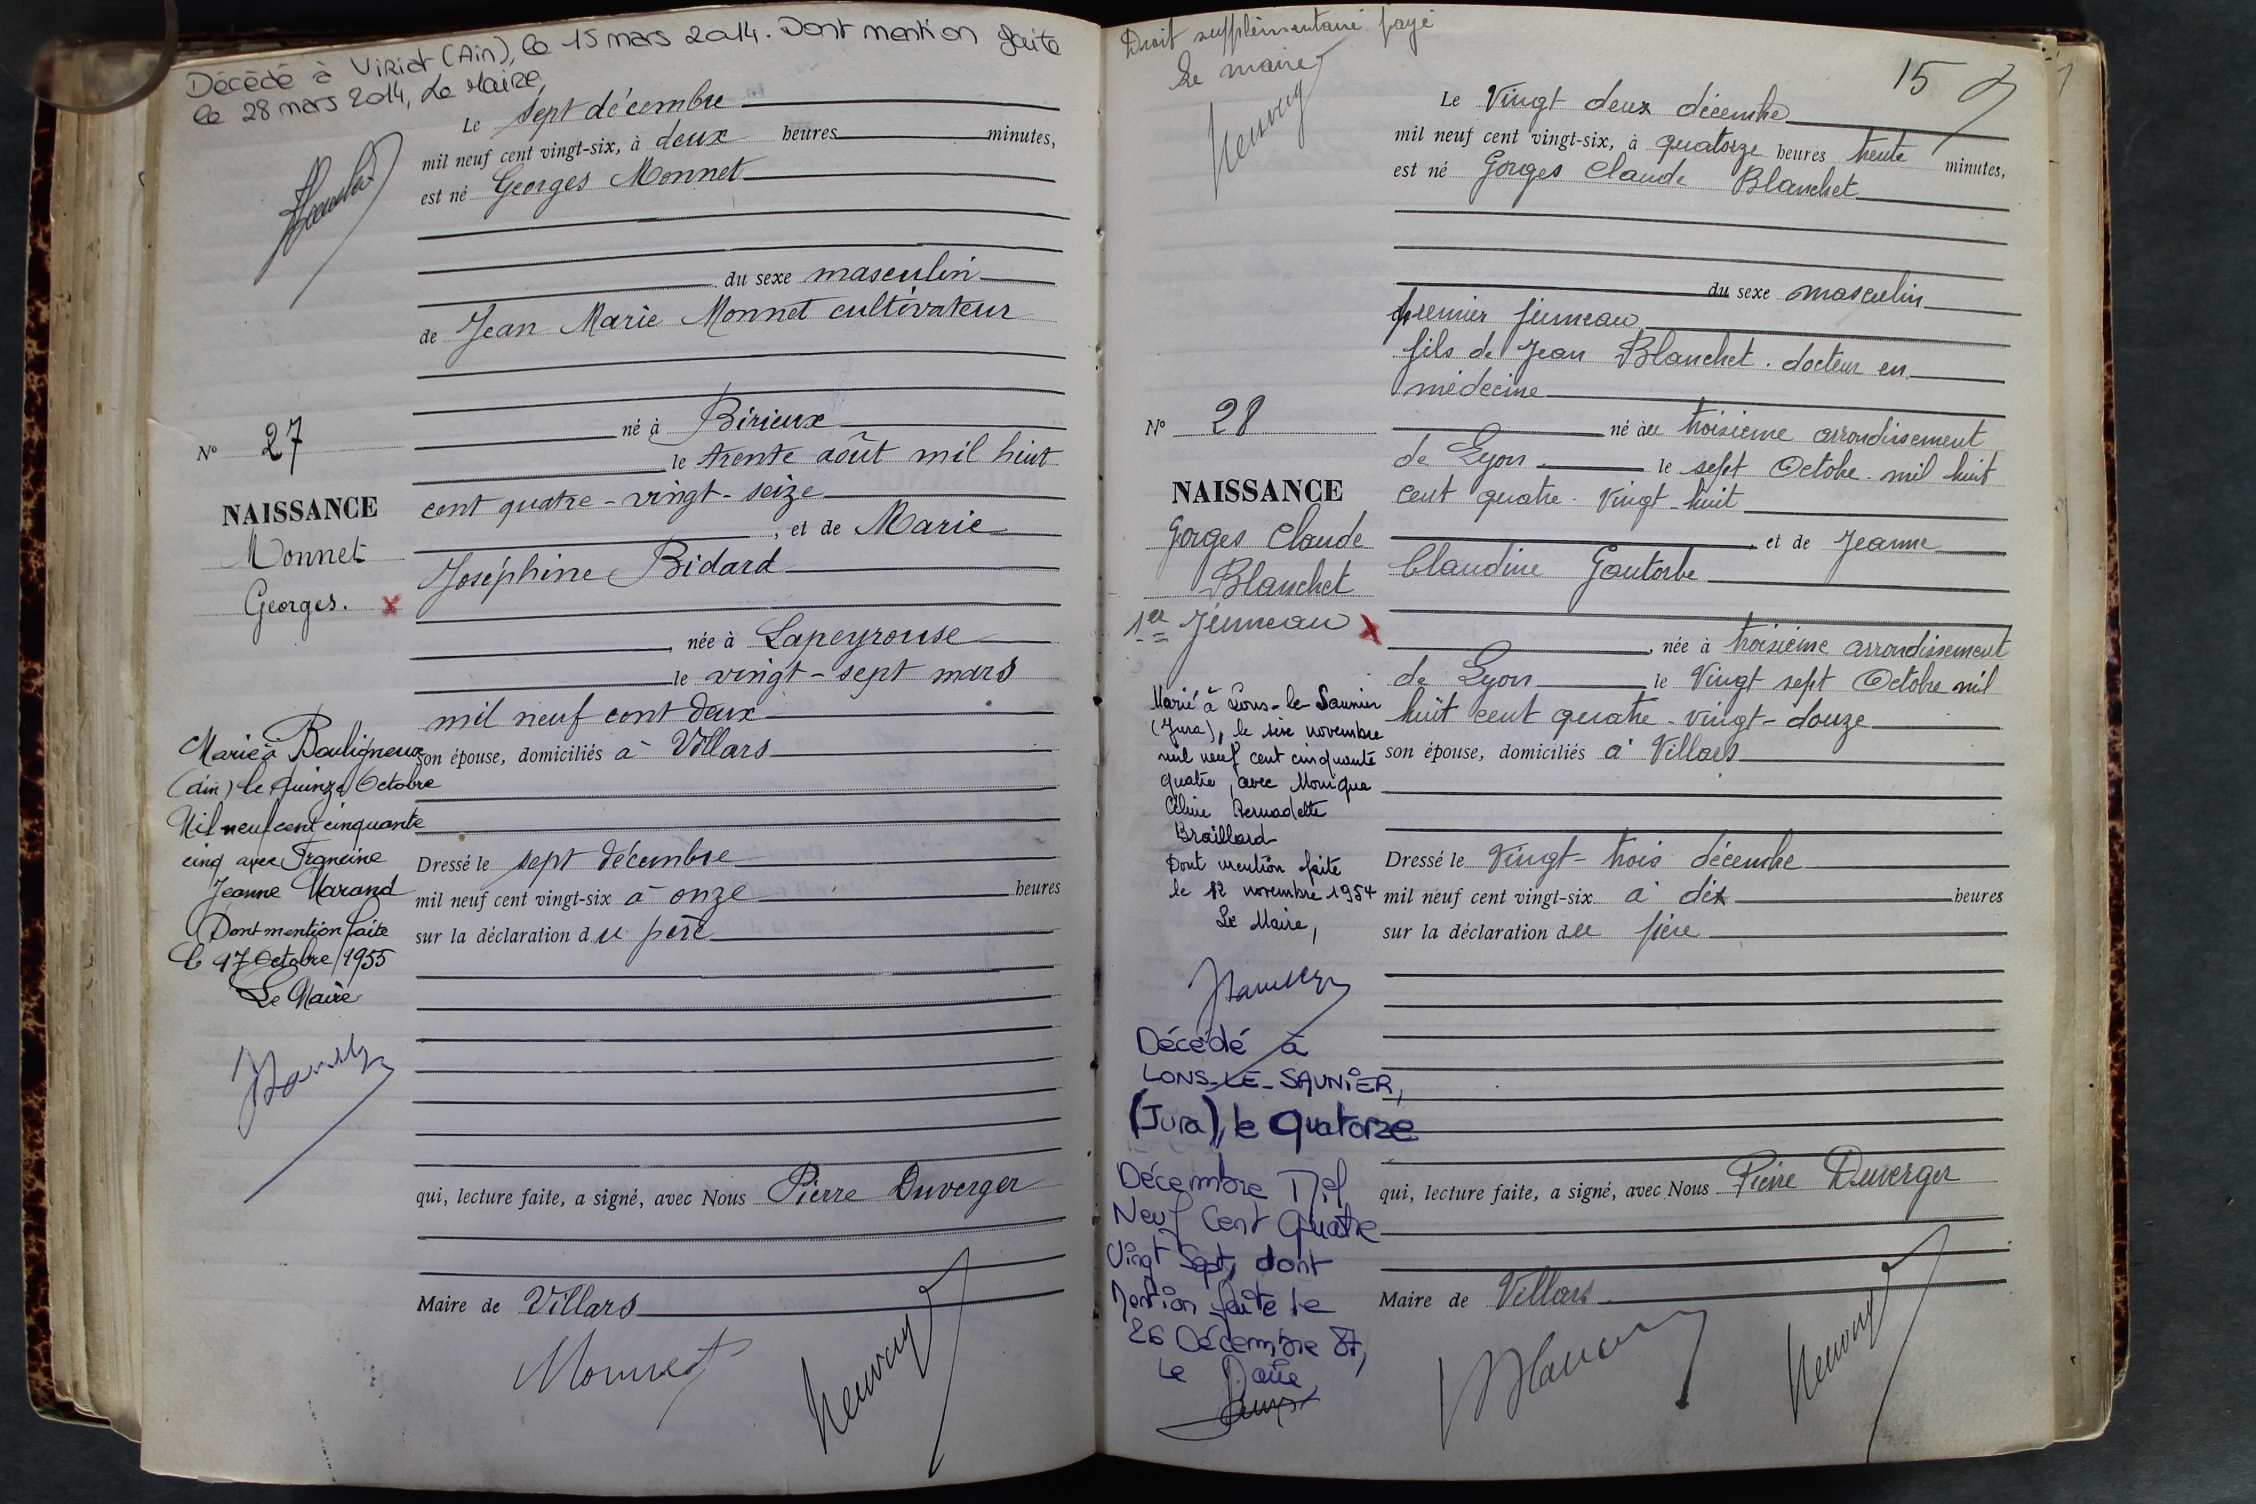 Décédé à Viriat (Ain), le 15 mars 2014. Dont mention faite
le 28 mars 2014, Le Maire,
Le sept décembre
mil neuf cent vingt-six, à deux heures minutes,
est né Georges Monnet
du sexe masculin
de Jean Marie Monnet cultivateur
né à Birieux
le trente août mil huit
cent quatre-vingt-seize
, et de Marie
Joséphine Bidard
, née à Lapeyrouse
le vingt-sept mars
mil neuf cent deux
son épouse, domiciliés à Villars
Dressé le sept décembre
mil neuf cent vingt-six à onze heures
sur la déclaration du père
qui, lecture faite, a signé, avec Nous Pierre Duverger
Maire de Villars
Monnet
N° 27
NAISSANCE
Monnet
Georges.
Marié à Bouligneux
(Ain) le Quinze Octobre
Mil neuf cent cinquante
cinq avec Francine
Jeanne Marand
Dont mention faite
le 17 Octobre 1955
Le Maire
Droit supplémentaire payé
Le maire
15
Le Vingt deux décembre
mil neuf cent vingt-six, à quatorze heures trente minutes,
est né Gorges Claude Blanchet
du sexe masculin
premier jumeau
fils de Jean Blanchet. docteur en
médecine
né au troisième arrondissement
de Lyon le sept Octobre mil huit
cent quatre-Vingt-huit
, et de Jeanne
Claudine Goutorbe
, née à troisième arrondissement
de Lyon le Vingt sept Octobre mil
huit cent quatre-vingt-douze
son épouse, domiciliés à Villars
Dressé le Vingt-trois décembre
mil neuf cent vingt-six à dix heures
sur la déclaration du père
qui, lecture faite, a signé, avec Nous Pierre Duverger
Maire de Villars
N° 28
NAISSANCE
Gorges Claude
Blanchet
1er Jumeau
Marié à Lons-le-Saunier
(Jura), le six novembre
mil neuf cent cinquante
quatre, avec Monique
Céline Bernadette
Braillard
Dont mention faite
le 12 novembre 1954
Le Maire,
Décédé à
LONS-LE-SAUNIER,
(Jura), le Quatorze
Décembre Mil
Neuf Cent Quatre
Vingt Sept, dont
Mention faite le
26 Décembre 87,
Le Maire,